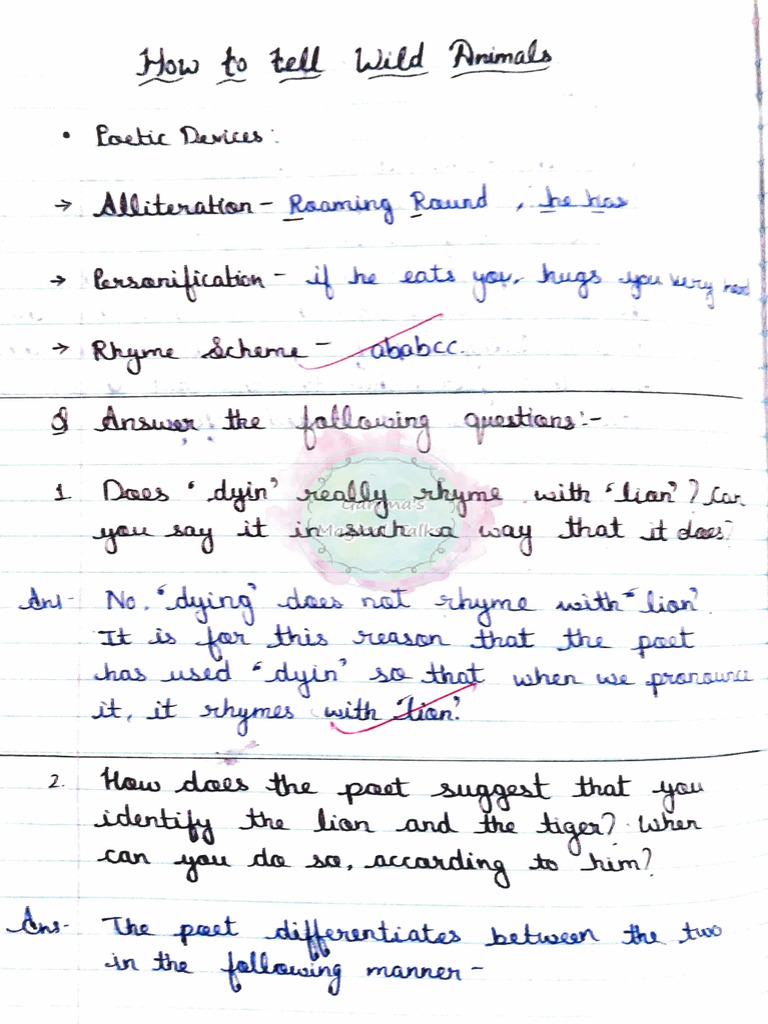 How to tell Wild Animals
• Poetic Devices:
→ Alliteration - Roaming Round, he has
→ Personification - if he eats you, hugs you very hard
→ Rhyme Scheme - ababcc.
Q Answer the following questions:-
1 Does 'dyin' really rhyme with 'lion'? Can
you say it in such a way that it does?
Ans- No, 'dying' does not rhyme with 'lion'.
It is for this reason that the poet
has used 'dyin' so that when we pronounce
it, it rhymes with 'lion'.
2. How does the poet suggest that you
identify the lion and the tiger? When
can you do so, according to him?
Ans- The poet differentiates between the two
in the following manner -